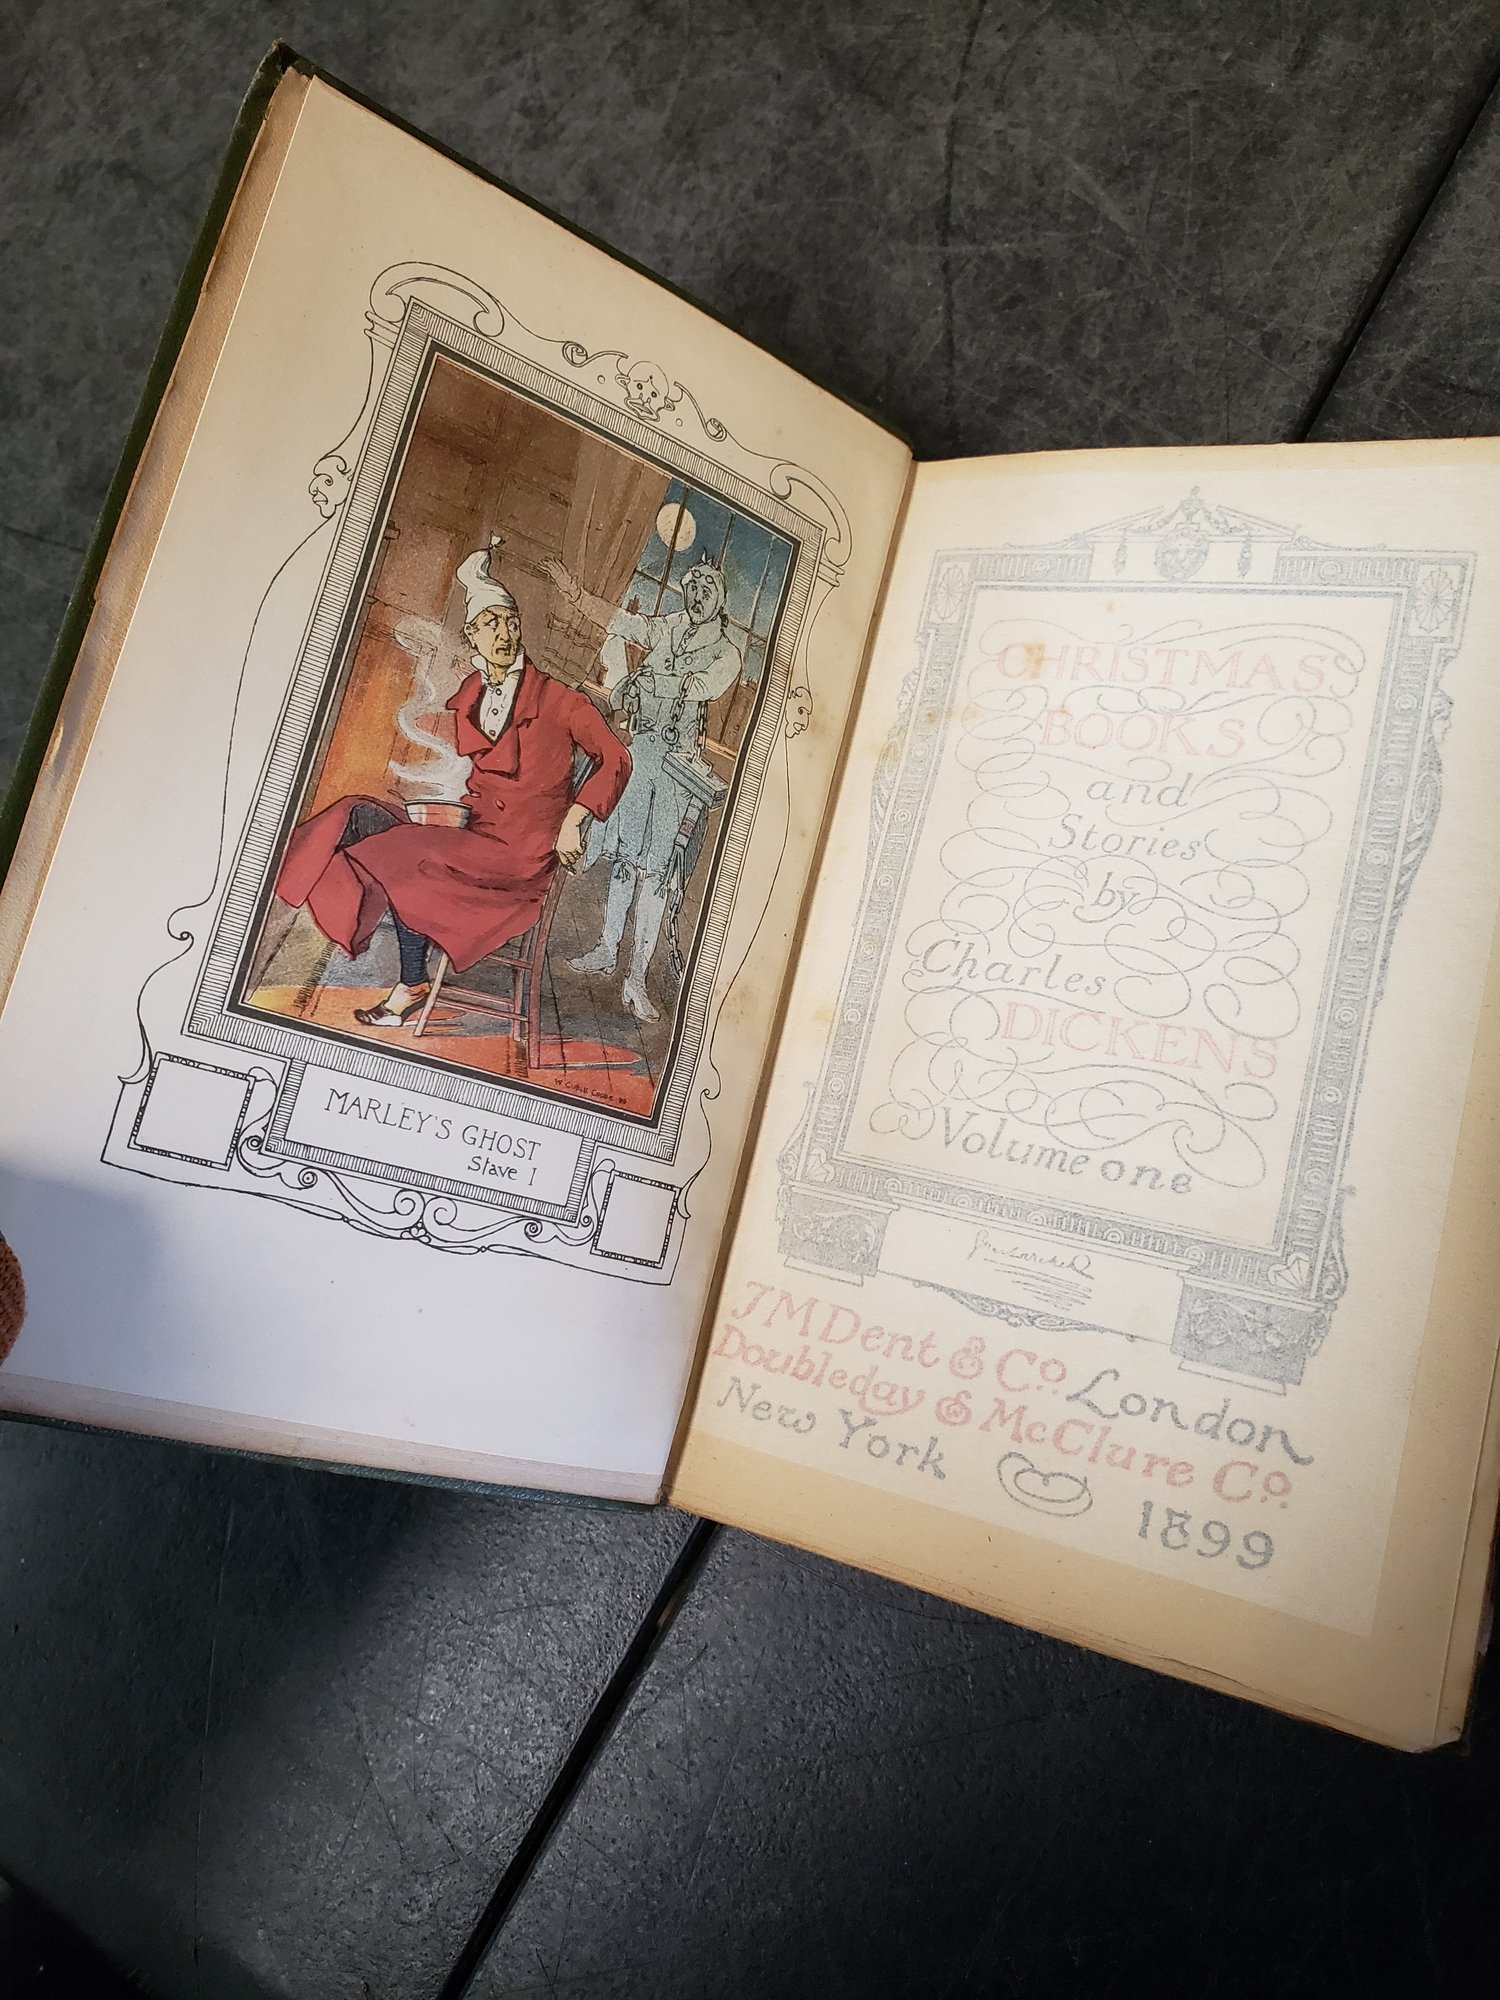 W. Cubitt Cooke
MARLEY'S GHOST
Stave I
CHRISTMAS
BOOKS
and
Stories
by
Charles
DICKENS
Volume one
J M Dent & Co. London
Doubleday & McClure Co.
New York 1899